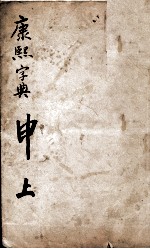 康熙字典
申上